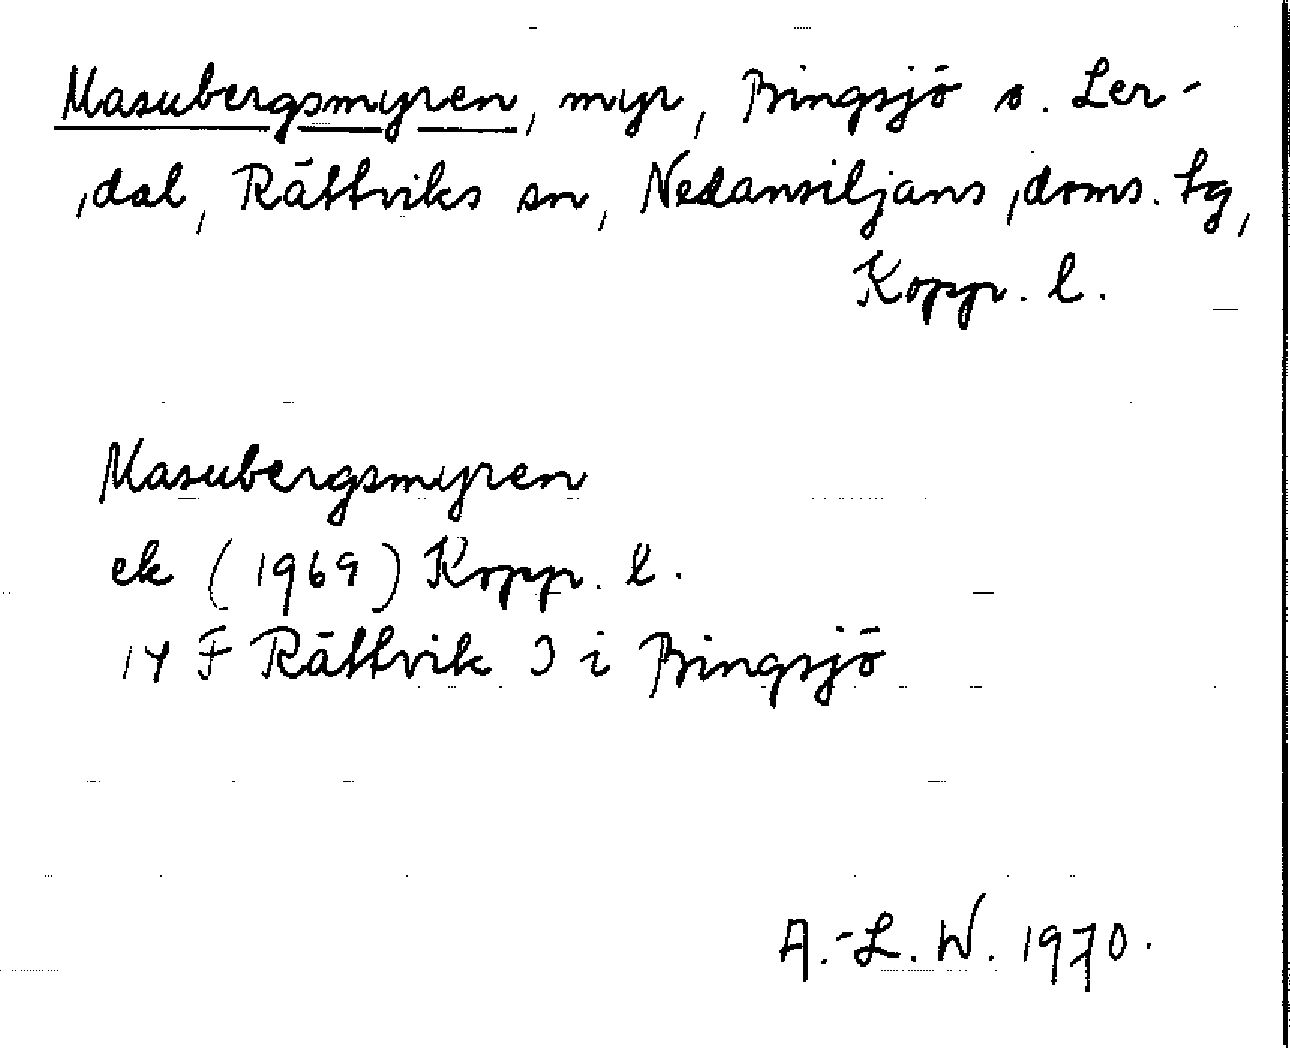 Masubergsmyren, myr, Bingsjö s. Ler-
dal, Rättviks sn, Nedansiljans doms. tg,
Kopp. l.
Masubergsmyren
ek (1969) Kopp. l.
14 F Rättvik I i Bingsjö
A.-L. W. 1970.